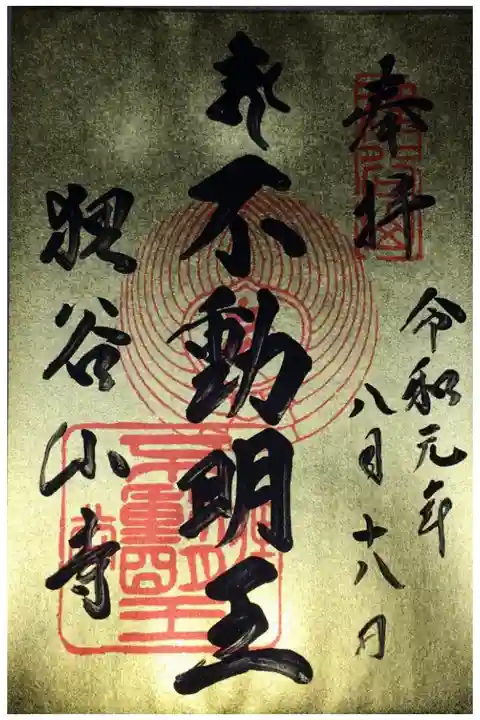 奉拝
令和元年
八月十八日
不動明王
狸谷山寺